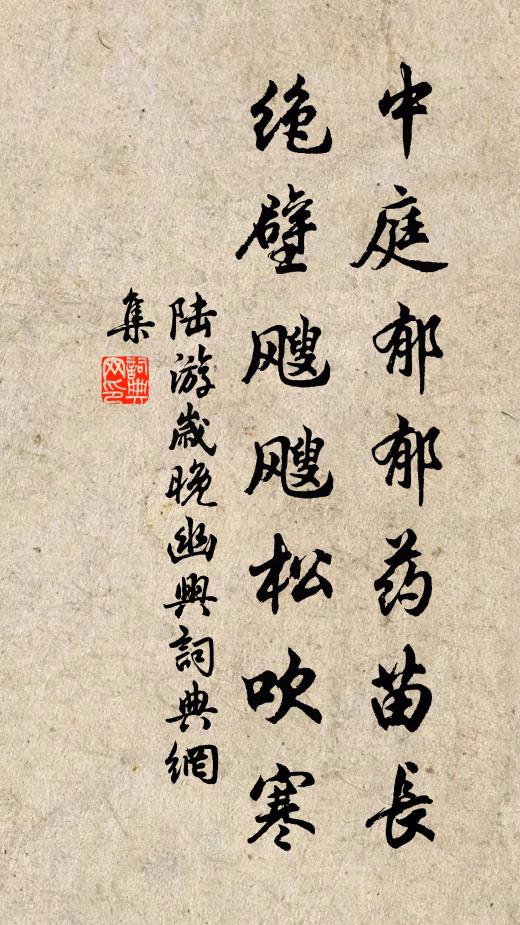 中庭郁郁药苗長
绝壁飕飕松吹寒
陆游歲晚幽興詞典網
集
詞典
网印